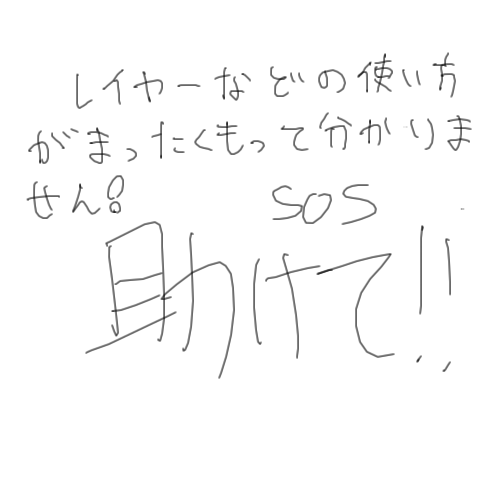 レイヤーなどの使い方
がまったくもって分かりま
せん!
SOS
助けて!!